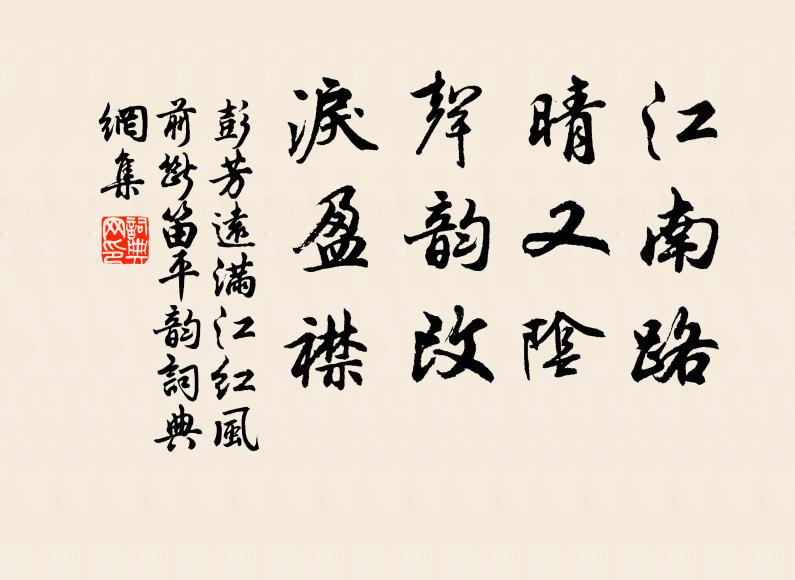 江南路
晴又陰
聲韵改
淚盈襟
彭芳遠滿江紅風
前斷笛平韵詞典
網集
詞典
网印